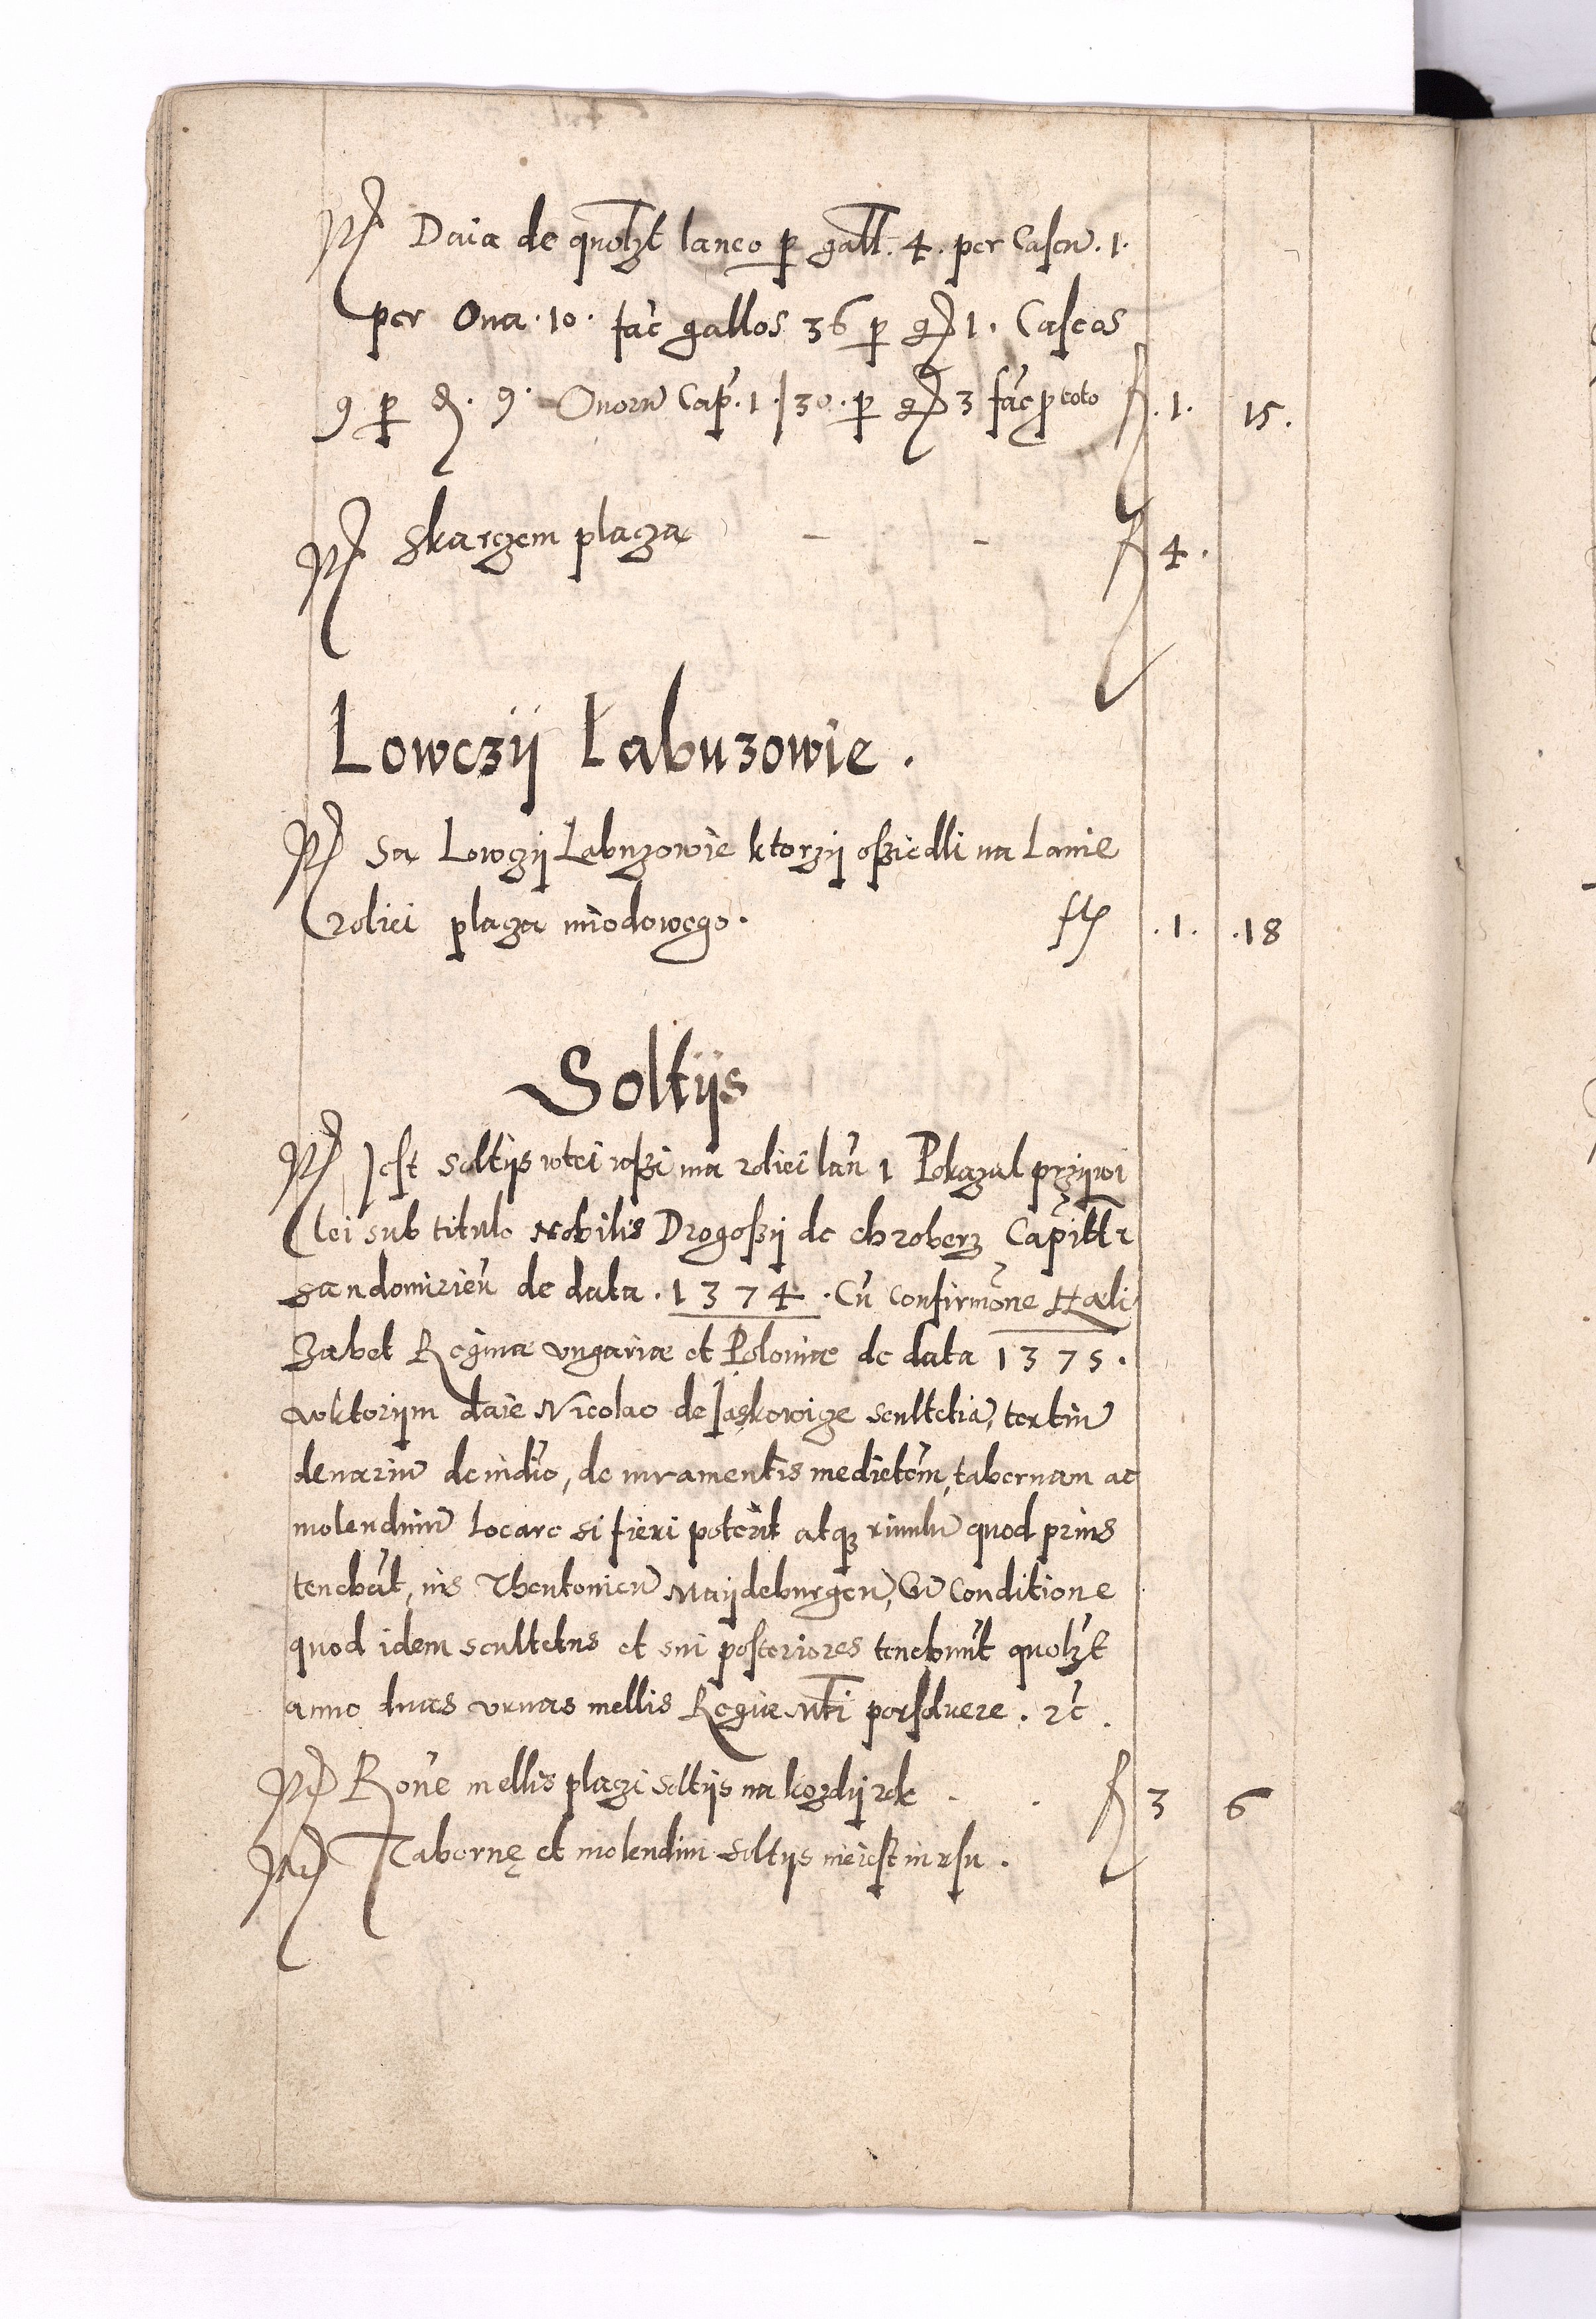 Daia de quolzt laneo p gall. 4. per Caseu. 1.
per Oua. 10. fac gallos 36 p g 1. Caseos
9 p d. 9. Ouoru Cap. 1. / 30. p g 3 fac p toto f. 1. 15.
Skarzem placza - - f 4.
Lowczÿ Łabuzowie.
Sa Lowczÿ Labuzowie ktorzÿ osziedli na Lanie
roliei placza miodowego. 1. 18
Soltÿs
Jest soltÿs wtei wszi ma roliei lan 1 Pokazal przÿwi
lei sub titulo Nobilis Drogoszÿ de chroberz Capitt
Sandomirien de data. 1374. Cu confirmone Hæli
zabet Reginæ vngariæ et Poloniæ de data 1375.
wktorÿm daie Nicolao de Jaskowicze scultetia, tertiu
denariu de iudicio, de iuramentis medietem, tabernam ac
molendinu locare si fieri poterit atq riuulu quod prius
tenebat, ius Theutonicu Maÿdeburgen, Cu conditione
quod idem scultetus et sui posteriores tenebunt quolzt
anno duas vrnas mellis Regiæ Mti persoluere. rc.
Rone mellis placzi soltÿs na kozdÿ rok - . f 3 6
Tabernę et molendini soltÿs nieiest in vsu.